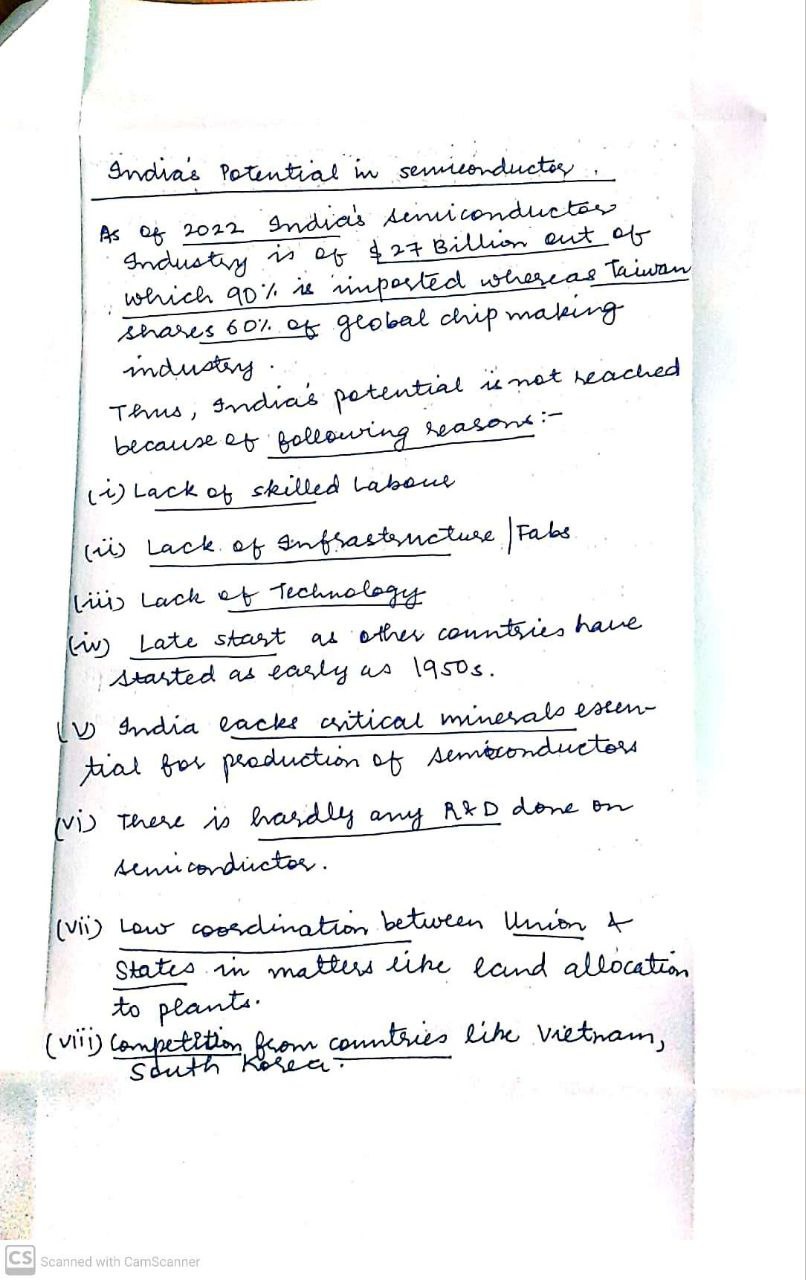 India's Potential in semiconductor.
As of 2022 India's semiconductor
Industry is of $27 Billion out of
which 90% is imported whereas Taiwan
shares 60% of global chip making
industry.
Thus, India's potential is not reached
because of following reasons:-
(i) Lack of skilled Labour
(ii) Lack of Infrastructure/Fabs
(iii) Lack of Technology
(iv) Late start as other countries have
started as early as 1950s.
(v) India lacks critical minerals essen-
tial for production of semiconductors
(vi) There is hardly any R&D done on
semiconductor.
(vii) Low coordination between Union &
States in matters like land allocation
to plants.
(viii) Competition from countries like Vietnam,
South Korea.
CS Scanned with CamScanner